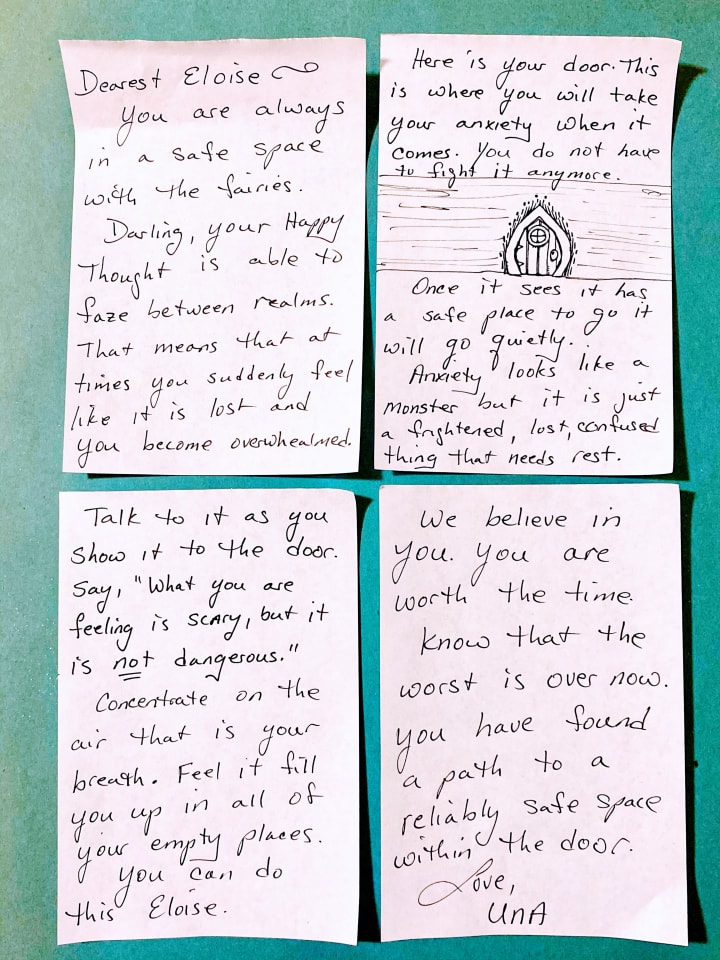 Dearest Eloise
You are always
in a safe space
with the fairies.
Darling, your Happy
Thought is able to
faze between realms.
That means that at
times you suddenly feel
like it is lost and
you become overwhealmed.
Here is your door. This
is where you will take
your anxiety when it
comes. You do not have
to fight it anymore.
Once it sees it has
a safe place to go it
will go quietly.
Anxiety looks like a
monster but it is just
a frightened, lost, confused
thing that needs rest.
Talk to it as you
show it to the door.
Say, "What you are
feeling is scary, but it
is not dangerous."
Concentrate on the
air that is your
breath. Feel it fill
you up in all of
your empty places.
You can do
this Eloise.
We believe in
you. You are
worth the time.
Know that the
worst is over now.
You have found
a path to a
reliably safe space
within the door.
Love,
UnA